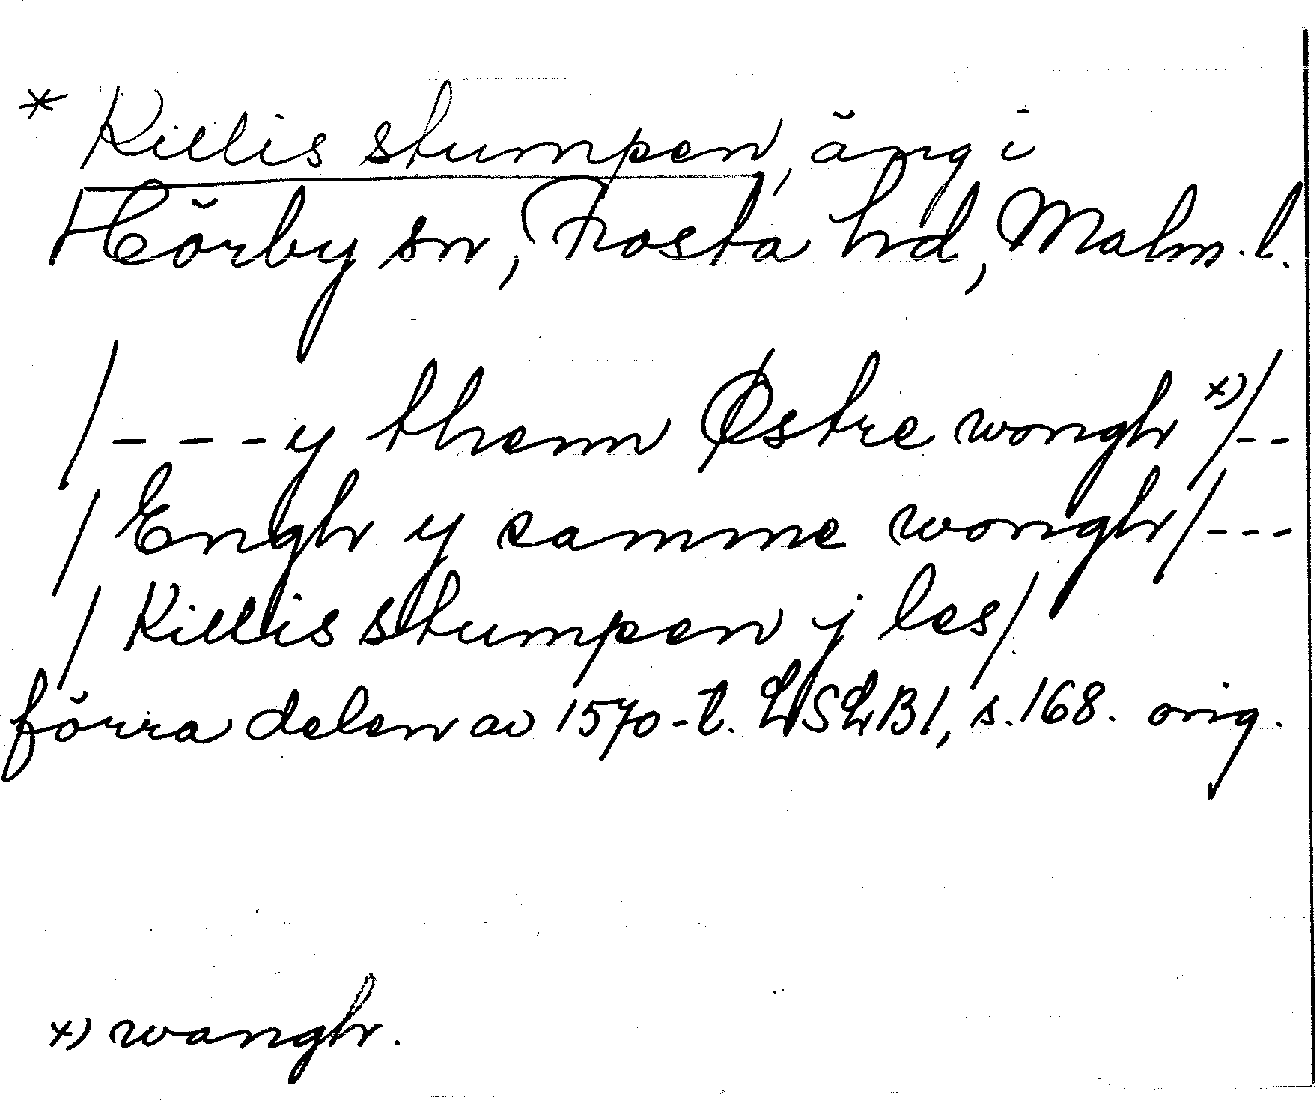 * Killis stumpen, äng i
Hörby sn, Frosta hd, Malm.l.
/---y them Østre wongh x)/--
/Engh y samme wongh/---
/Killis stumpen j les/
förra delen av 1570-t. LSLB1, s.168. orig.
x) wangh.